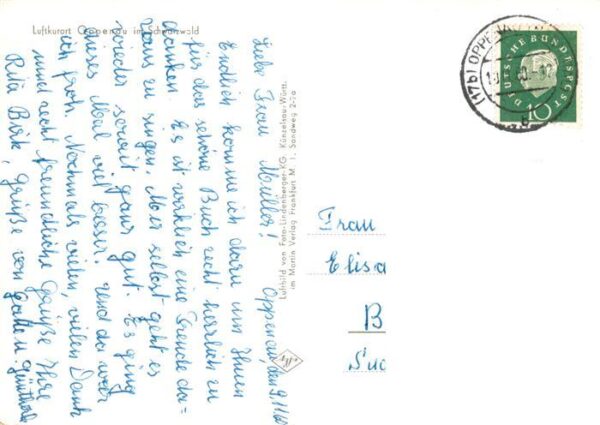 Luftkurort Oppenau im Schwarzwald
Oppenau, den 9.11.60
Liebe Frau Müller!
Endlich komme ich dazu um Ihnen
für das schöne Buch recht herzlich zu
danken. Es ist wirklich eine Freude da-
raus zu singen. Mir selbst geht es
wieder soweit ganz gut. Es ging
dieses Mal viel besser. Und da war
ich froh. Nochmals vielen, vielen Dank
und recht freundliche Grüße Ihre
Rita Birk, Grüße von
Luftbild von Foto-Lindenberger-KG. Künzelsau-Württ.
im Martin Verlag Frankfurt M. 1, Sandweg
DEUTSCHE BUNDESPOST
10
(17b) OPPENAU
Frau
Elisa
B